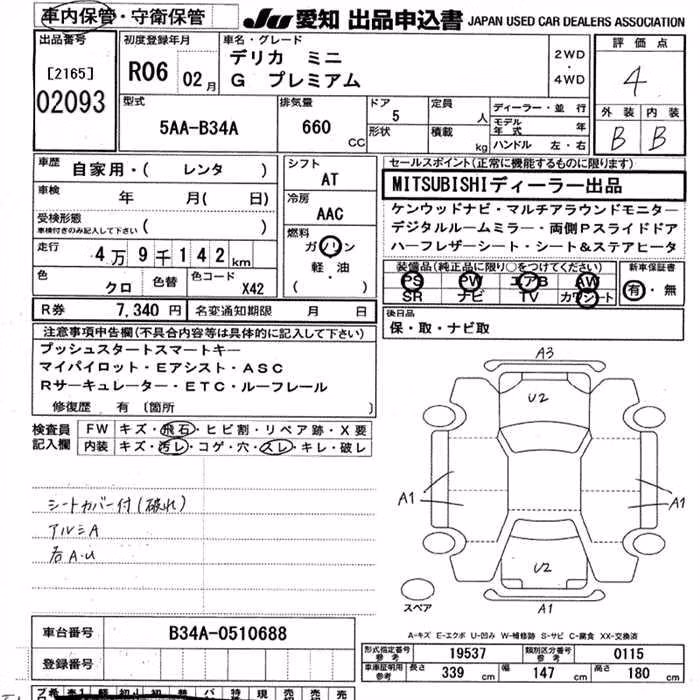 車内保管・守衛保管
JU 愛知 出品申込書 JAPAN USED CAR DEALERS ASSOCIATION
出品番号
[2165]
02093
初度登録年月
R06 02月
車名・グレード
デリカ ミニ
G プレミアム
2WD
・
4WD
評価点
4
型式
5AA-B34A
排気量
660 CC
ドア
5
形状
定員
人
積載
kg
ディーラー・並行
モデル年式 年
ハンドル 左・右
外装 内装
B B
車歴 自家用・( レンタ )
車検 年 月( 日)
受検形態
車検付きのみ記入して下さい ( )
走行 4万9千142km
色 クロ 色替 色コード X42
シフト
AT
冷房
AAC
燃料
ガソリン
・
軽・油
( )
セールスポイント(正常に機能するものに限ります)
MITSUBISHIディーラー出品
ケンウッドナビ・マルチアラウンドモニター
デジタルルームミラー・両側Pスライドドア
ハーフレザーシート・シート&ステアヒータ
装備品(純正品に限り○をつけてください)
PS PW エアB AW
SR ナビ TV カワシート
新車保証書
有・無
R券 7,340円 名変通知期限 月 日
後日品
保・取・ナビ取
注意事項申告欄(不具合内容等は具体的に記入して下さい)
プッシュスタートスマートキー
マイパイロット・Eアシスト・ASC
Rサーキュレーター・ETC・ルーフレール
修復歴 有 〔箇所 〕
検査員記入欄
FW キズ・飛石・ヒビ割・リペア跡・X要
内装 キズ・汚レ・コゲ・穴・スレ・キレ・破レ
シートカバー付(破れ)
アルミA
右A.U
A3
U2
A1
A1
U2
A1
スペア
A-キズ E-エクボ U-凹み W-補修跡 S-サビ C-腐食 XX-交換済
車台番号 B34A-0510688
登録番号
形式指定番号 参考 19537 類別区分番号 参考 0115
車庫証明用 参考 長さ 339 cm 幅 147 cm 高さ 180 cm